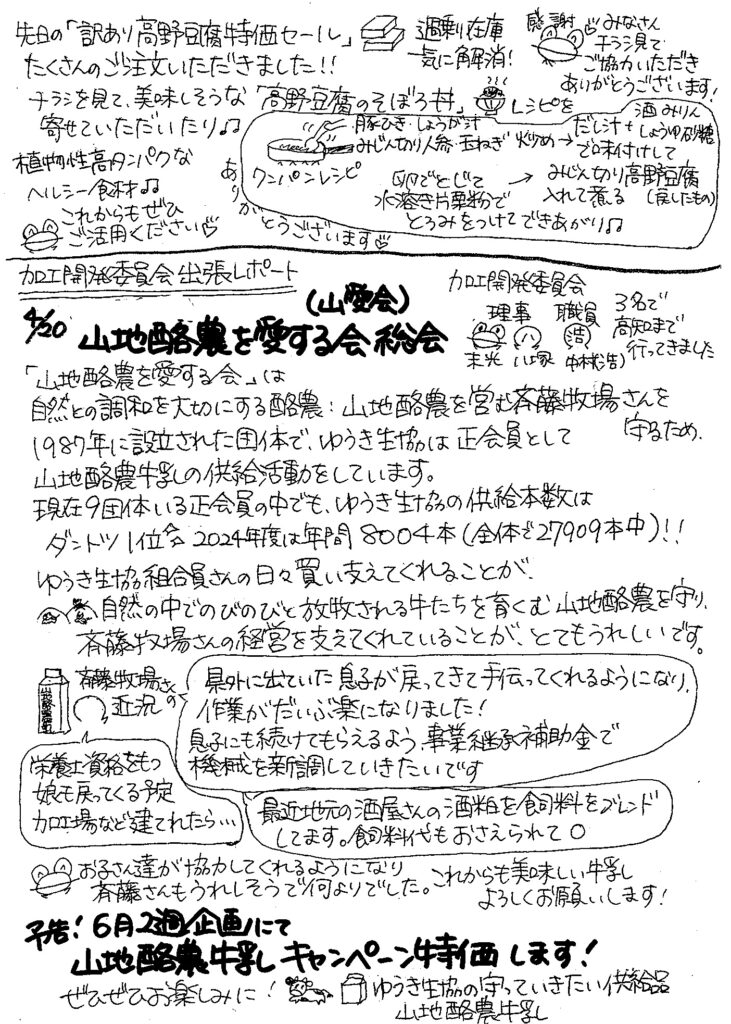 先日の「訳あり高野豆腐特価セール」
たくさんのご注文いただきました!!
過剰在庫
一気に解消!
感謝
みなさん
チラシ見て
ご協力いただき
ありがとうございます!
チラシを見て、美味しそうな「高野豆腐のそぼろ丼」レシピを
寄せていただいたり♫
ありがとうございます
植物性高タンパクな
ヘルシー食材♫
これからもぜひ
ご活用ください
ワンパンレシピ
豚ひき・しょうが汁
みじん切り人参・玉ねぎ 炒め→
酒みりん
だし汁+しょうゆ砂糖
で味付けして
→みじん切り高野豆腐
入れて煮る(戻したもの)
卵でとじて
水溶き片栗粉で
とろみをつけてできあがり♫
加工開発委員会出張レポート
4/20
(山愛会)
山地酪農を愛する会 総会
加工開発委員会
理事 職員
末光 八塚 中村(浩)
浩
3名で
高知まで
行ってきました
「山地酪農を愛する会」は
自然との調和を大切にする酪農:山地酪農を営む斉藤牧場さんを
守るため、
1987年に設立された団体で、ゆうき生協は正会員として
山地酪農牛乳の供給活動をしています。
現在9団体いる正会員の中でも、ゆうき生協の供給本数は
ダントツ1位 2024年度は年間8004本(全体で27909本中)!!
ゆうき生協組合員さんの日々買い支えてくれることが、
自然の中でのびのびと放牧される牛たちを育くむ山地酪農を守り、
斉藤牧場さんの経営を支えてくれていることが、とてもうれしいです。
山地酪農牛乳
斉藤牧場さんの
近況
県外に出ていた息子が戻ってきて手伝ってくれるようになり、
作業がだいぶ楽になりました!
息子にも続けてもらえるよう、事業継承補助金で
機械を新調していきたいです
栄養士資格をもつ
娘も戻ってくる予定
加工場など建てれたら…
最近地元の酒屋さんの酒粕を飼料をブレンド
してます。飼料代もおさえられて○
お子さん達が協力してくれるようになり
斉藤さんもうれしそうで何よりでした。
これからも美味しい牛乳
よろしくお願いします!
予告!6月2週企画にて
山地酪農牛乳キャンペーン特価します!
ぜひぜひお楽しみに!
ゆうき生協の守っていきたい供給品
山地酪農牛乳